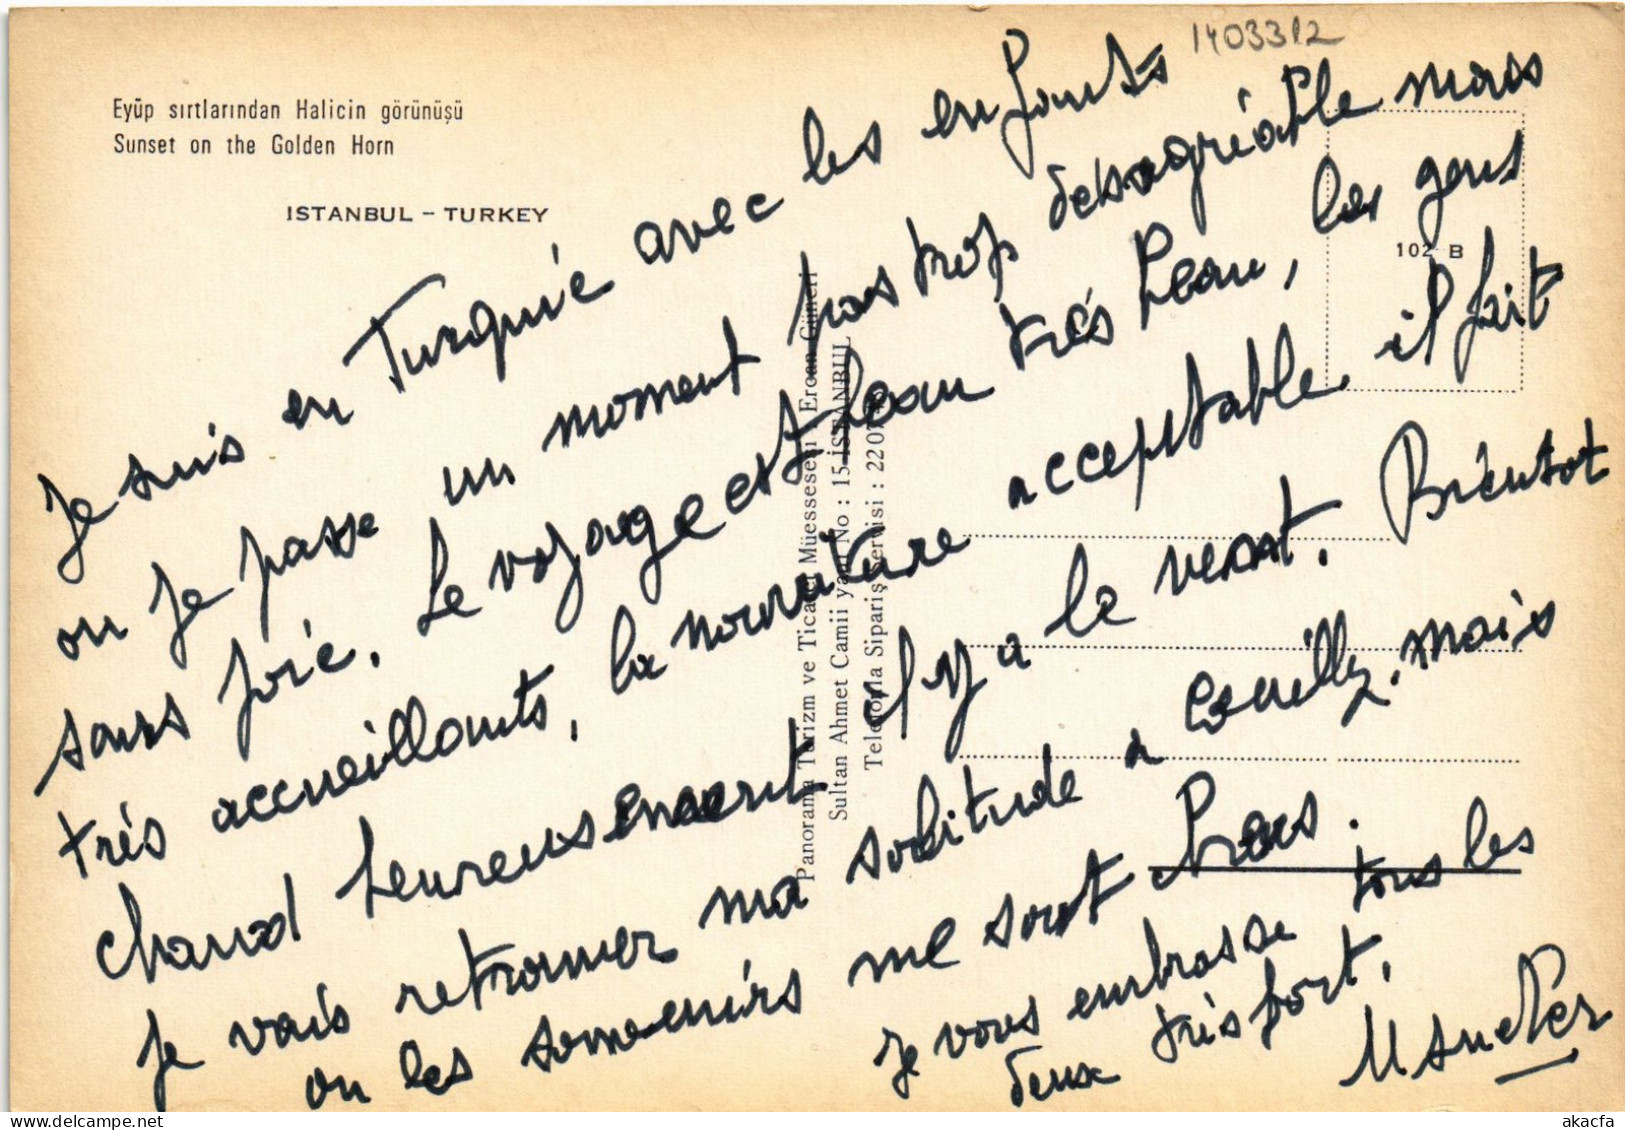 1403312
Eyüp sırtlarından Halicin görünüşü
Sunset on the Golden Horn
ISTANBUL – TURKEY
102 B
Panorama Turizm ve Ticaret Müessesesi Ercan Güneri
Sultan Ahmet Camii yanı No : 15 İSTANBUL
Telefonla Sipariş Servisi : 220
Je suis en Turquie avec les enfants
ou je passe un moment pas trop désagréable mais
sans joie. Le voyage est beau très beau, les gens
très accueillants, la nourriture acceptable il fait
chaud heureusement il y a le vent. Bientot
je vais retrouver ma solitude a mais
ou les souvenirs me sont
je vous embrasse tous les
deux très fort.
akacfa